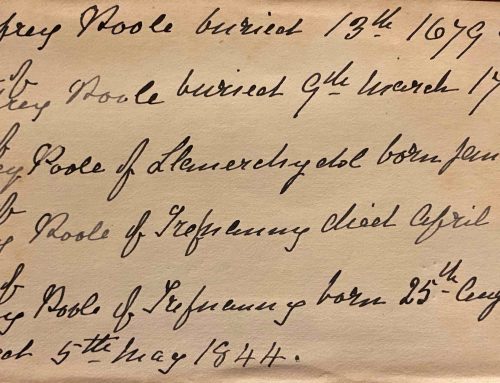 frey Poole buried 13th 1679
of frey Poole buried 9th March 17
of ey Poole of Llanerchydol born Jan
of y Poole of Trefnanny died April
of ey Poole of Trefnanny born 25th Aug
5th May 1844.